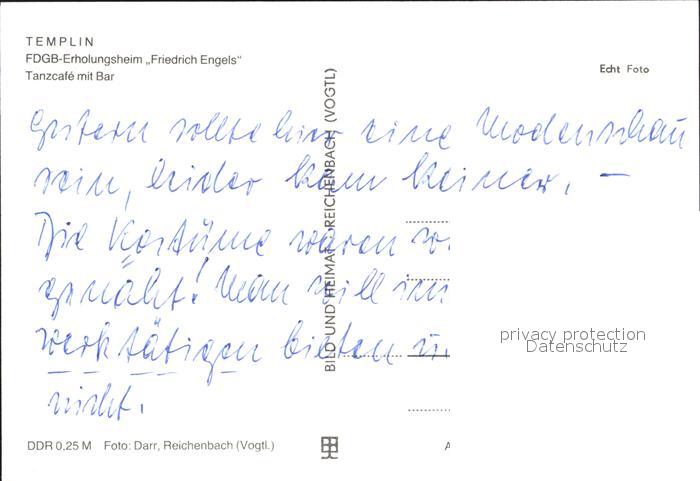 TEMPLIN
FDGB-Erholungsheim „Friedrich Engels"
Tanzcafé mit Bar
Echt Foto
Gestern sollte hier eine Modenschau
sein, leider kam keiner. –
Die Kostüme waren
genäht! Man will
werktätigen bieten u.
nicht.
BILD UND HEIMAT REICHENBACH (VOGTL)
privacy protection
Datenschutz
DDR 0,25 M Foto: Darr, Reichenbach (Vogtl.)
A